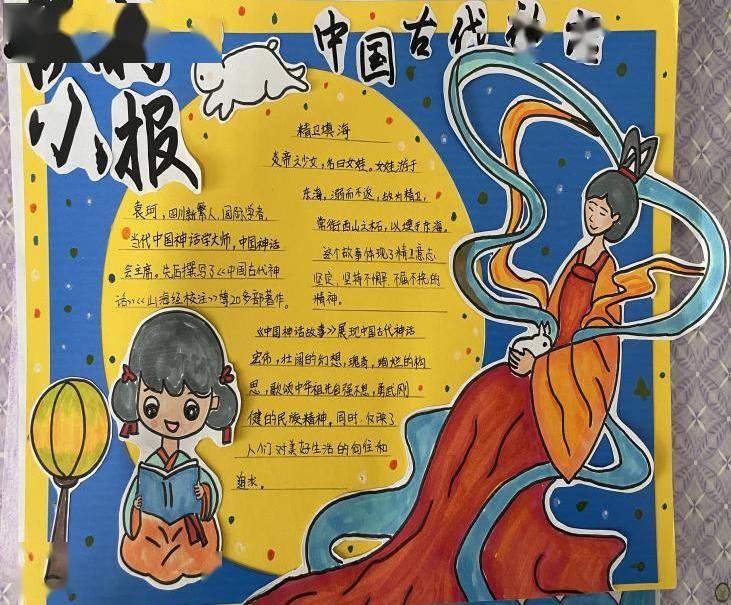 小报
中国古代神
精卫填海
炎帝之少女，名曰女娃。女娃游于
东海，溺而不返，故为精卫，
常衔西山之木石，以堙于东海。
这个故事体现了精卫意志
坚定，坚持不懈，不屈不挠的
精神。
袁珂，四川新繁人，国际学者，
当代中国神话学大师，中国神话
会主席。先后撰写了《中国古代神
话》《山海经校注》等20多部著作。
《中国神话故事》展现中国古代神话
宏伟，壮阔的幻想，瑰奇，绚烂的构
思，歌颂中华祖先自强不息，勇武刚
健的民族精神。同时，反映了
人们对美好生活的向往和
追求。